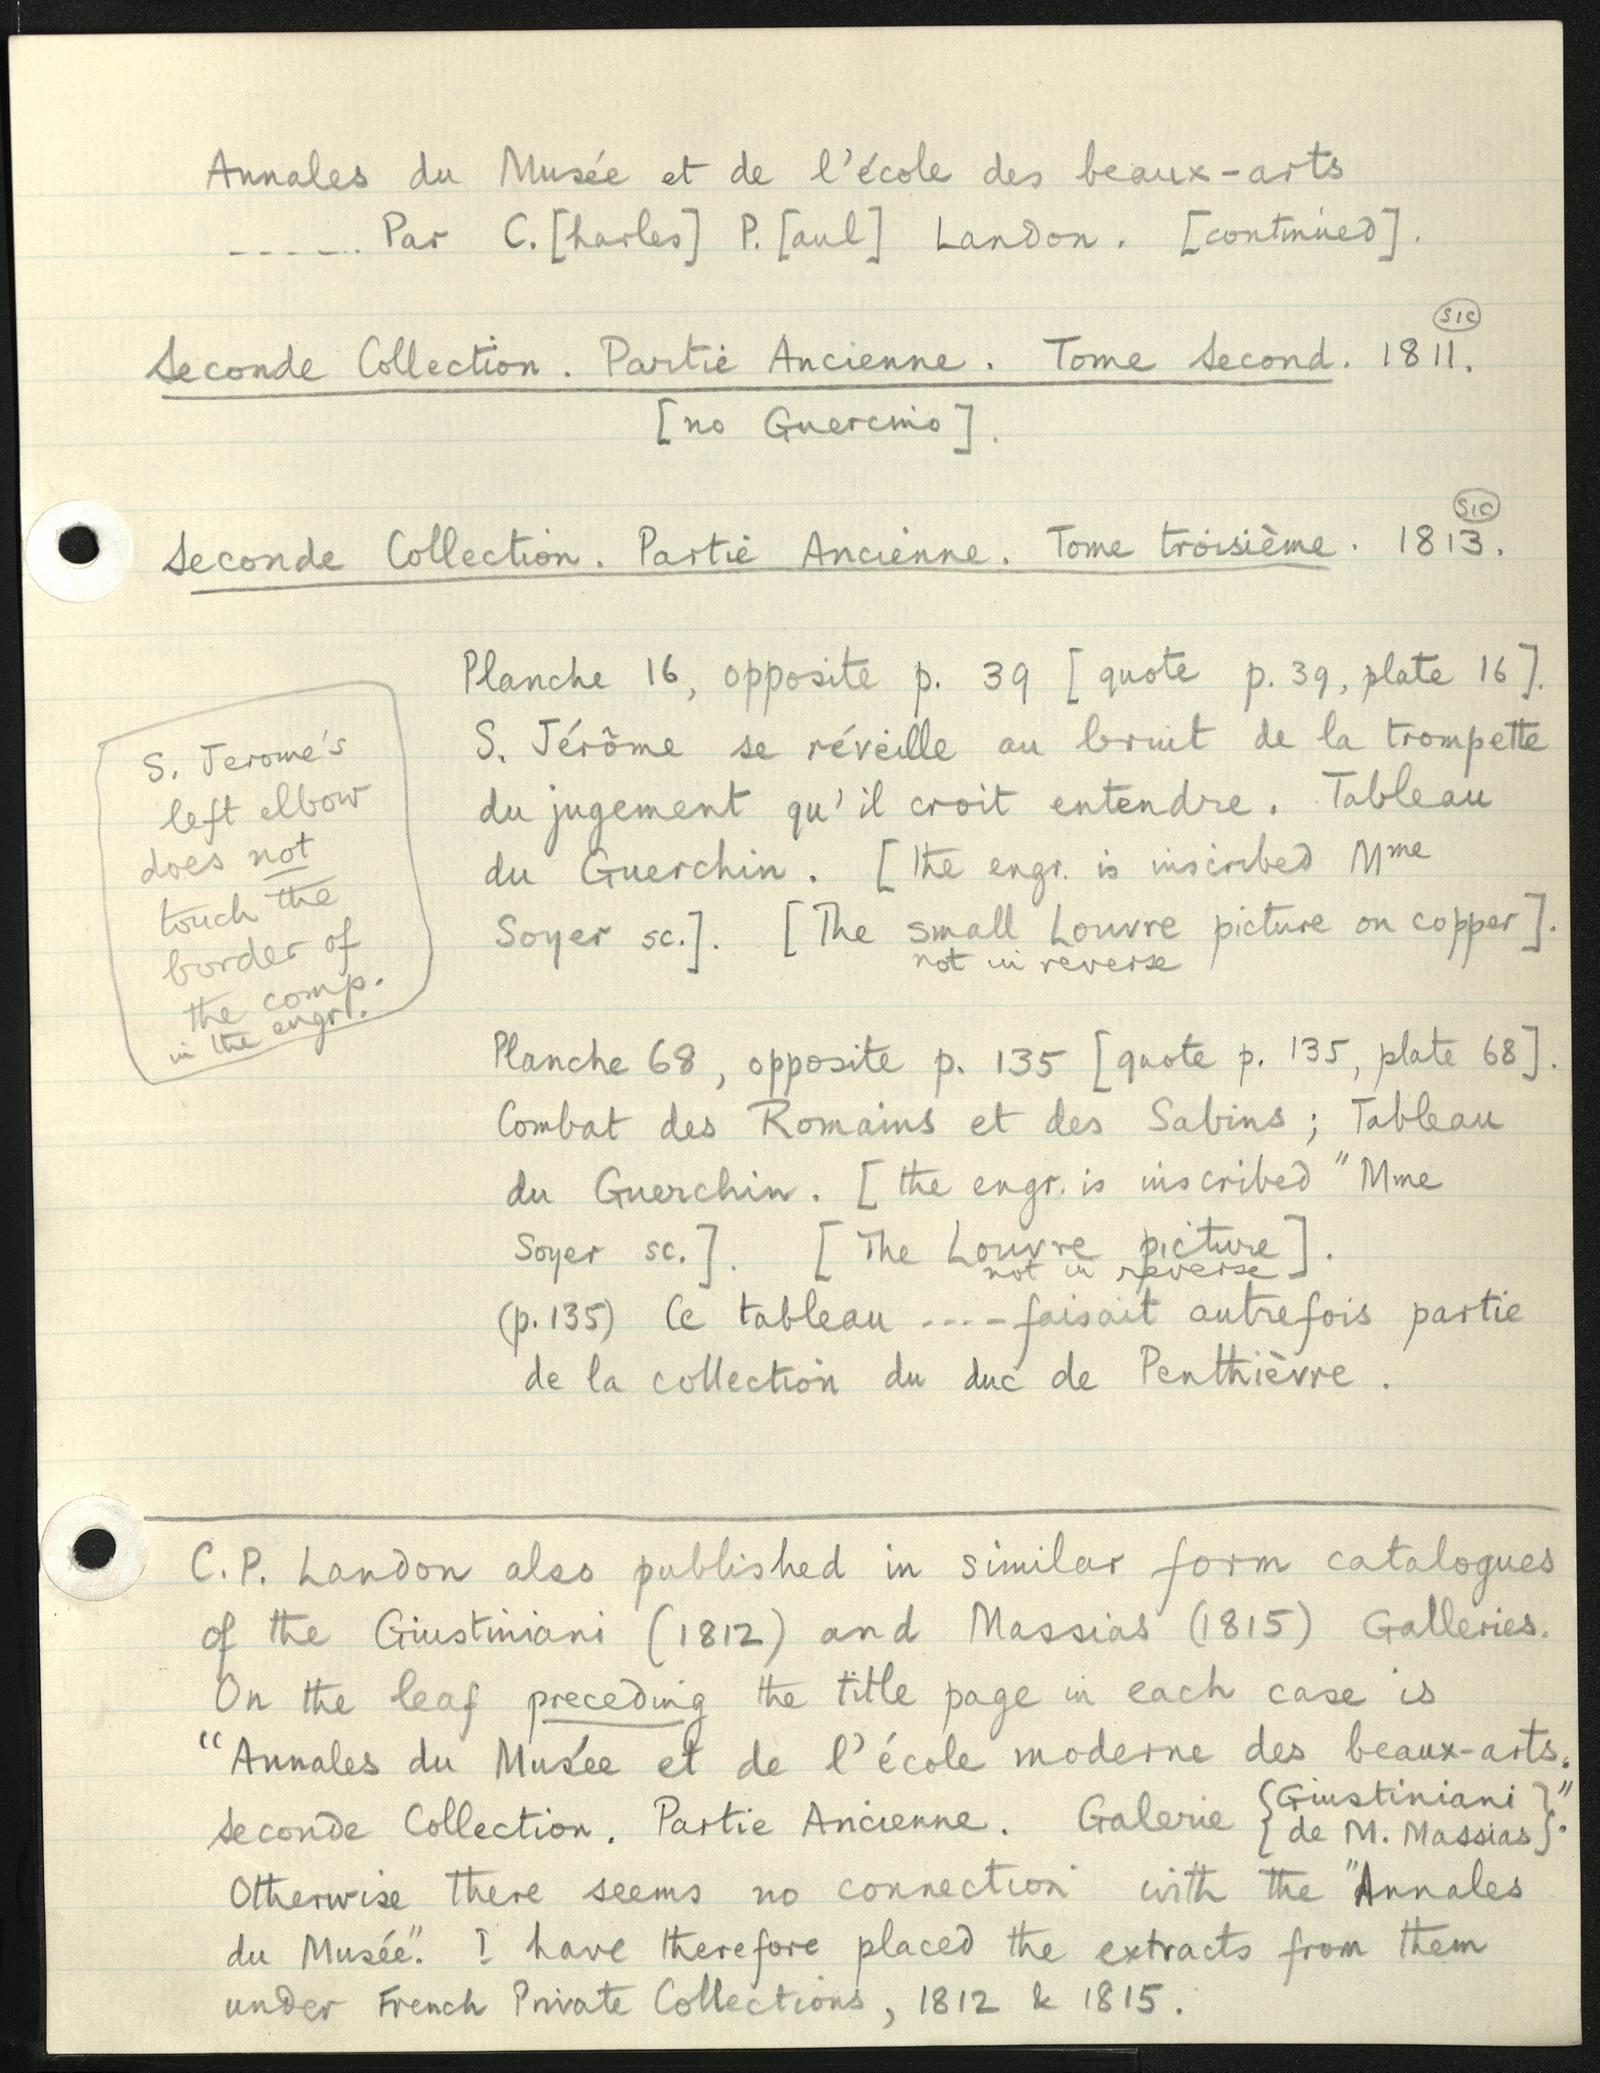 Annales du Musée et de l'école des beaux-arts
...... Par C.[harles] P.[aul] Landon. [continued].
sic
Seconde Collection. Partie Ancienne. Tome Second. 1811.
[no Guercino].
sic
Seconde Collection. Partie Ancienne. Tome troisième. 1813.
Planche 16, opposite p. 39 [quote p. 39, plate 16].
S. Jérôme se réveille au bruit de la trompette
du jugement qu'il croit entendre. Tableau
du Guerchin. [the engr. is inscribed Mme
Soyer sc.]. [The small Louvre picture on copper].
not in reverse
S. Jerome's
left elbow
does not
touch the
border of
the comp.
in the engr.
Planche 68, opposite p. 135 [quote p. 135, plate 68].
Combat des Romains et des Sabins; Tableau
du Guerchin. [the engr. is inscribed "Mme
Soyer sc.]. [The Louvre picture].
not in reverse
(p. 135) Ce tableau .... faisait autrefois partie
de la collection du duc de Penthièvre.
C.P. Landon also published in similar form catalogues
of the Giustiniani (1812) and Massias (1815) Galleries.
On the leaf preceding the title page in each case is
"Annales du Musée et de l'école moderne des beaux-arts.
Seconde Collection. Partie Ancienne. Galerie {Giustiniani}"
{de M. Massias}.
Otherwise there seems no connection with the "Annales
du Musée". I have therefore placed the extracts from them
under French Private Collections, 1812 & 1815.